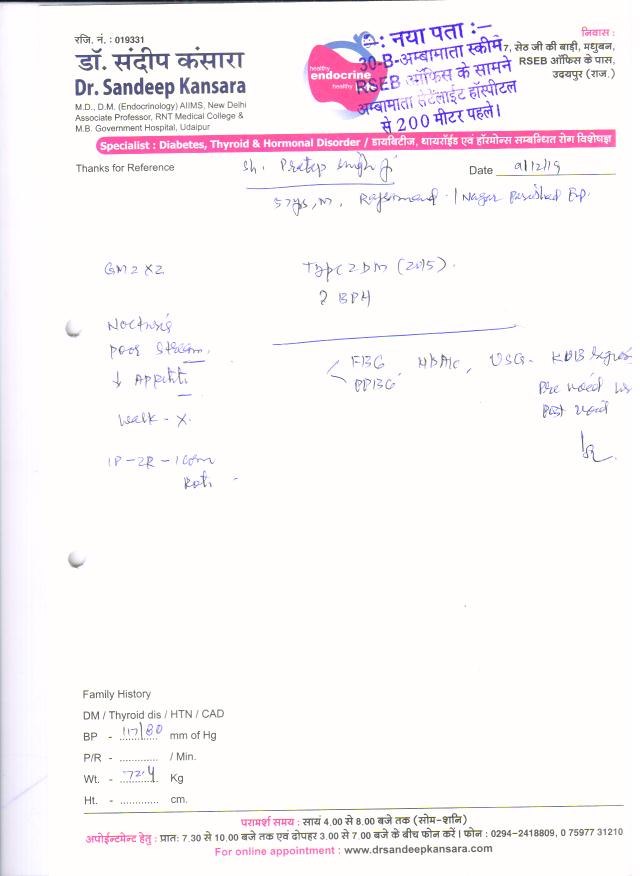 रजि. नं. : 019331
डॉ. संदीप कंसारा
Dr. Sandeep Kansara
M.D., D.M. (Endocrinology) AIIMS, New Delhi
Associate Professor, RNT Medical College &
M.B. Government Hospital, Udaipur
healthy
endocrine
healthy
नया पता :-
30-B-अम्बामाता स्कीम
RSEB ऑफिस के सामने
अम्बामाता सेटेलाईट हॉस्पीटल
से 200 मीटर पहले।
निवास :
7, सेठ जी की बाड़ी, मधुबन,
RSEB ऑफिस के पास,
उदयपुर (राज.)
Specialist : Diabetes, Thyroid & Hormonal Disorder / डायबिटीज, थायरॉईड एवं हॉरमोन्स सम्बन्धित रोग विशेषज्ञ
Thanks for Reference
Sh. Pratap Singh Ji
Date 9/12/19
57 yrs, M, Rajsamand / Nagar Parishad
GM2 X2
Type 2 DM (2015).
? BPH
Nocturia
poor stream
↓ Appetite
walk - X
FBG
PPBG
HbA1c, USG - KUB
Pre void
Post void
1P-2R-1
Roti
Family History
DM / Thyroid dis / HTN / CAD
BP - 117/80 mm of Hg
P/R - ............. / Min.
Wt. - 72.4 Kg
Ht. - ............. cm.
परामर्श समय : सायं 4.00 से 8.00 बजे तक (सोम-शनि)
अपोईन्टमेन्ट हेतु : प्रातः 7.30 से 10.00 बजे तक एवं दोपहर 3.00 से 7.00 बजे के बीच फोन करें। फोन : 0294-2418809, 0 75977 31210
For online appointment : www.drsandeepkansara.com